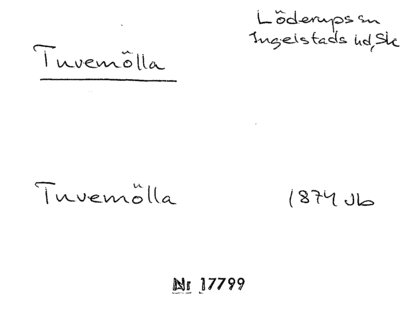 Löderups sn
Ingelstads hd, Sk
Tuvemölla
Tuvemölla 1874 Jb
Nr 17799